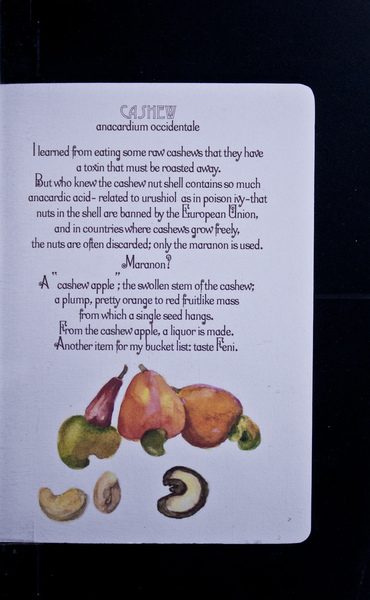 CASHEW
anacardium occidentale
I learned from eating some raw cashews that they have
a toxin that must be roasted away.
But who knew the cashew nut shell contains so much
anacardic acid- related to urushiol as in poison ivy-that
nuts in the shell are banned by the European Union,
and in countries where cashews grow freely,
the nuts are often discarded; only the maranon is used.
Maranon?
A "cashew apple"; the swollen stem of the cashew;
a plump, pretty orange to red fruitlike mass
from which a single seed hangs.
From the cashew apple, a liquor is made.
Another item for my bucket list: taste Feni.